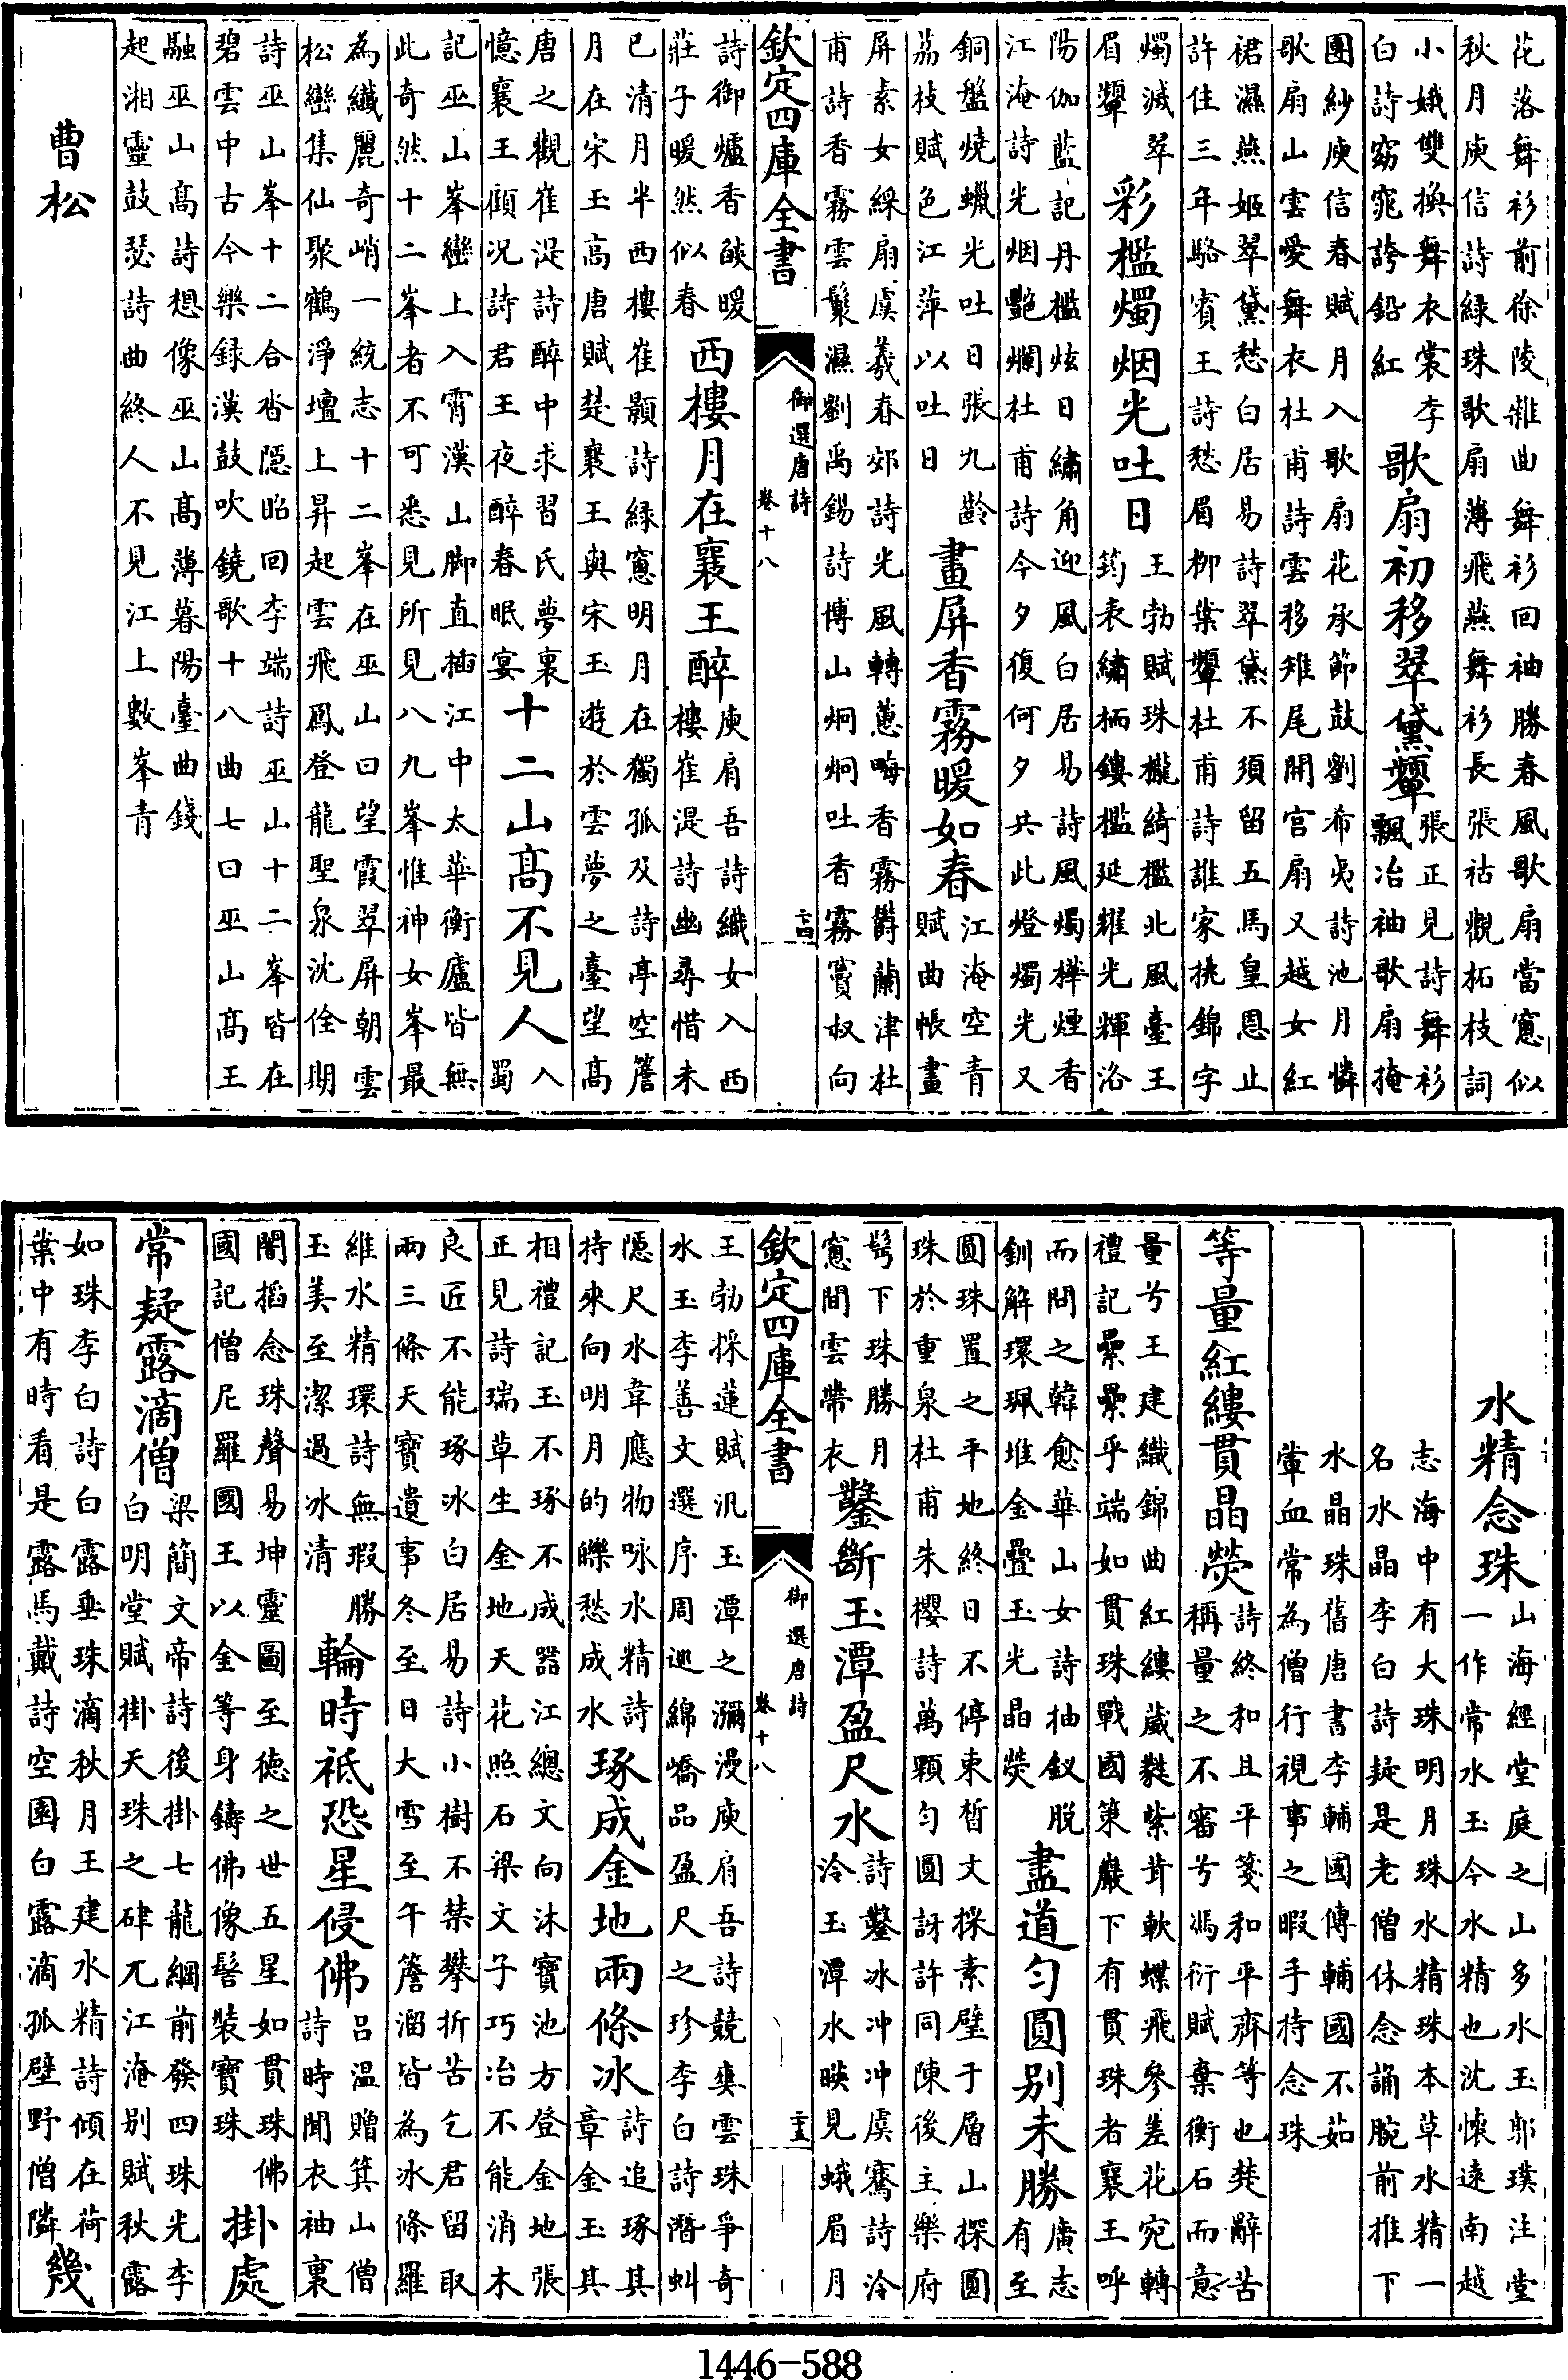 花落舞衫前徐陵雜曲舞衫回袖勝春風歌扇當窻似
秋月庾信詩緑珠歌扇薄飛燕舞衫長張祜觀柘枝詞
小娥雙換舞衣裳李
白詩窈窕誇鉛紅
歌扇初移翠黛顰
張正見詩舞衫
飄冶袖歌扇掩
團紗庾信春賦月入歌扇花承節鼓劉希夷詩池月憐
歌扇山雲愛舞衣杜甫詩雲移雉尾開宮扇又越女紅
裙濕燕姬翠黛愁白居易詩翠黛不須留五馬皇恩止
許住三年駱賓王詩愁眉柳葉顰杜甫詩誰家挑錦字
燭滅翠
眉顰
彩檻燭烟光吐日
王勃賦珠櫳綺檻北風臺王
筠表繡柄鏤檻延耀光輝洛
陽伽藍記丹檻炫日繡角迎風白居易詩風燭樺煙香
江淹詩光烟艷爛杜甫詩今夕復何夕共此燈燭光又
銅盤燒蠟光吐日張九齡
荔枝賦色江萍以吐日
畫屏香霧暖如春
江淹空青
賦曲帳畫
屏素女綵扇虞羲春郊詩光風轉蕙晦香霧欝蘭津杜
甫詩香霧雲鬟濕劉禹錫詩博山炯炯吐香霧賨叔向
欽定四庫全書
御選唐詩
卷十八
二十四
詩御爐香㷔暖
莊子暖然似春
西樓月在襄王醉
庾肩吾詩織女入西
樓崔湜詩幽尋惜未
已清月半西樓崔顥詩緑窻明月在獨孤及詩亭空簷
月在宋玉高唐賦楚襄王與宋玉遊於雲夢之臺望高
唐之觀崔湜詩醉中求習氏夢裏
憶襄王顧况詩君王夜醉春眠宴
十二山髙不見人
入
蜀
記巫山峯巒上入霄漢山脚直插江中太華衡廬皆無
此奇然十二峯者不可悉見所見八九峯惟神女峯最
為纖麗奇峭一統志十二峯在巫山曰望霞翠屏朝雲
松巒集仙聚鶴淨壇上昇起雲飛鳳登龍聖泉沈佺期
詩巫山峯十二合沓隠昭回李端詩巫山十二峯皆在
碧雲中古今樂録漢鼓吹鐃歌十八曲七曰巫山髙王
融巫山髙詩想像巫山髙薄暮陽臺曲錢
起湘靈鼓瑟詩曲終人不見江上數峯青
曹松
水精念珠
山海經堂庭之山多水玉郭璞注堂
一作常水玉今水精也沈懷遠南越
志海中有大珠明月珠水精珠本草水精一
名水晶李白詩疑是老僧休念誦腕前推下
水晶珠舊唐書李輔國傳輔國不茹
葷血常為僧行視事之暇手持念珠
等量紅縷貫晶熒
詩終和且平箋和平齊等也楚辭苦
稱量之不審兮馮衍賦棄衡石而意
量兮王建織錦曲紅縷葳蕤紫茸軟蝶飛參差花宛轉
禮記纍纍乎端如貫珠戰國策巖下有貫珠者襄王呼
而問之韓愈華山女詩抽釵脱
釧解環珮堆金疊玉光晶熒
盡道勻圓别未勝
廣志
有至
圓珠置之平地終日不停束晳文採素璧于層山探圓
珠於重泉杜甫朱櫻詩萬顆勻圓訝許同陳後主樂府
髩下珠勝月
窻間雲帶衣
鑿斷玉潭盈尺水
詩鑿冰冲冲虞騫詩泠
泠玉潭水映見蛾眉月
欽定四庫全書
御選唐詩
卷十八
二十五
王勃採蓮賦汎玉潭之瀰漫庾肩吾詩競爽雲珠爭竒
水玉李善文選序周巡綿嶠品盈尺之珍李白詩潛虯
隠尺水韋應物咏水精詩
持來向明月的皪愁成水
琢成金地兩條冰
詩追琢其
章金玉其
相禮記玉不琢不成器江總文向沐寶池方登金地張
正見詩瑞草生金地天花照石梁文子巧冶不能消木
良匠不能琢冰白居易詩小樹不禁攀折苦乞君留取
兩三條天寶遺事冬至日大雪至午簷溜皆為冰條羅
維水精環詩無瑕勝
玉美至潔過冰清
輪時祗恐星侵佛
吕温贈箕山僧
詩時聞衣袖裏
闇搯念珠聲易坤靈圖至徳之世五星如貫珠佛
國記僧尼羅國王以金等身鑄佛像髻裝寶珠
掛處
常疑露滴僧
梁簡文帝詩後掛七龍綱前發四珠光李
白明堂賦掛天珠之硉兀江淹别賦秋露
如珠李白詩白露垂珠滴秋月王建水精詩傾在荷
葉中有時看是露馬戴詩空園白露滴孤壁野僧隣
幾
1446-588